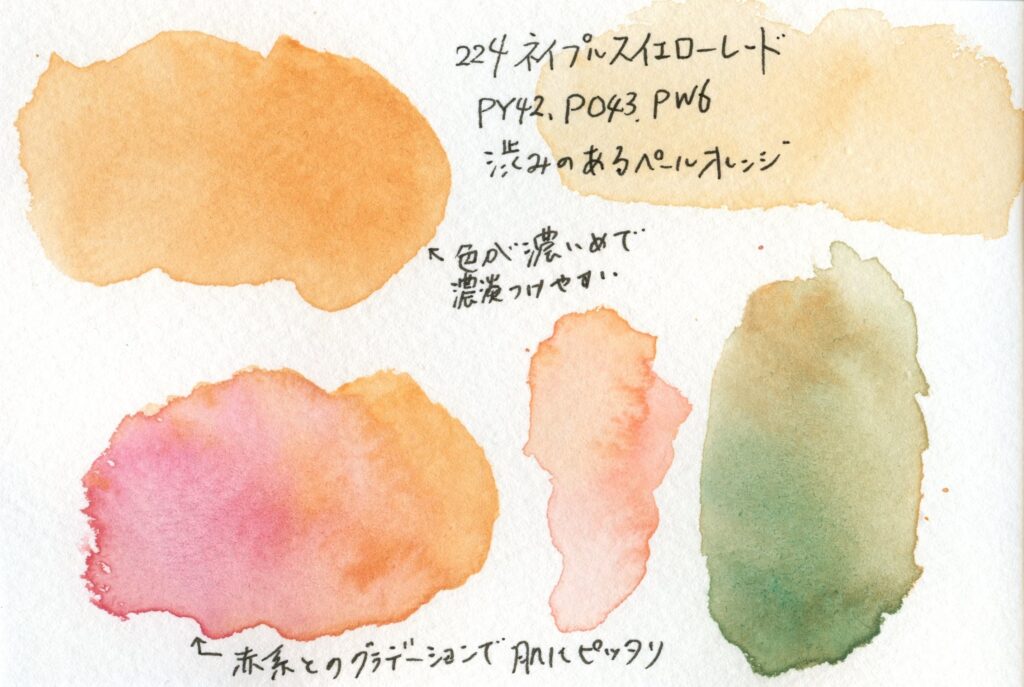 224 ネイプルスイエローレード
PY42、PO43、PW6
渋みのあるペールオレンジ
↖色が濃いめで
濃淡つけやすい
↖赤系とのグラデーションで肌にピッタリ